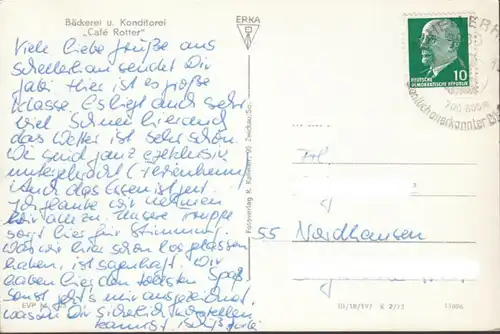 Bäckerei u. Konditorei
„Café Rotter"
Viele liebe Grüße aus
Schellerhau sendet Dir
Gabi. Hier ist es große
Klasse. Es liegt auch sehr
viel Schnee hier und
das Wetter ist sehr schön.
Wir sind ganz exklusiv
untergebracht (Ferienheim)
Und das Essen ist gut.
Ich glaube wir nehmen
hier alle zu. Unsere Truppe
sorgt hier für Stimmung.
Was wir hier schon losgelassen
haben, ist sagenhaft. Wir
haben hier den tollsten Spaß
Sonst geht's mir ausgezeichnet,
was Du Dir sicherlich vorstellen
kannst.
EVP
ERKA
Fotoverlag K. Kallmer, 95 Zwickau/Sa.
10
DEUTSCHE
DEMOKRATISCHE REPUBLIK
700-800m
Staatlich anerkannter
Frl.
55 Nordhausen
III/18/197 K 2/73